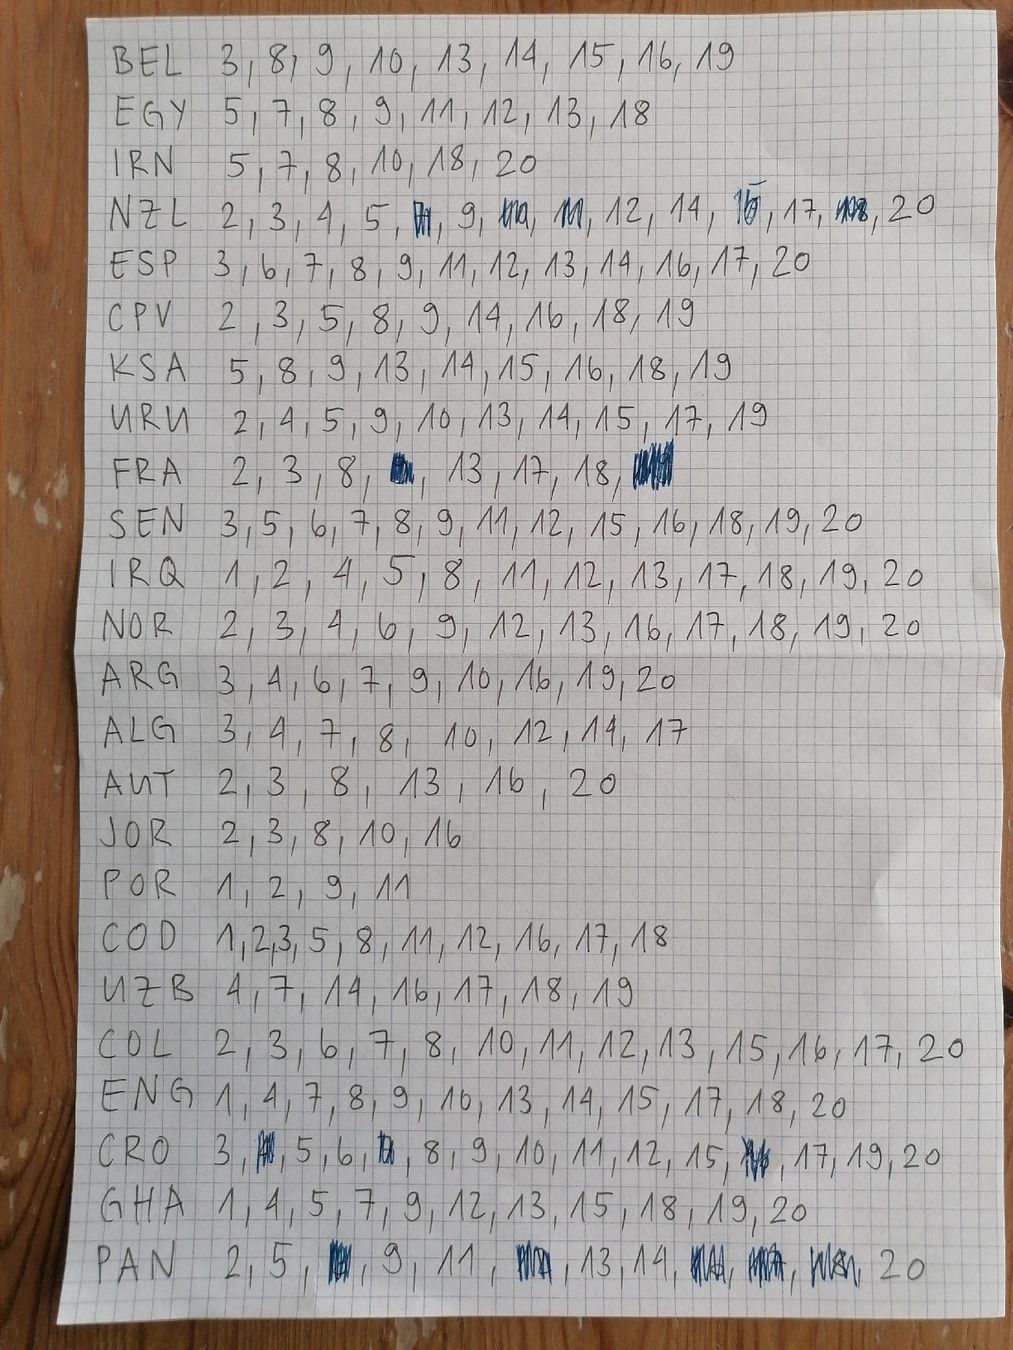 BEL 3, 8, 9, 10, 13, 14, 15, 16, 19
EGY 5, 7, 8, 9, 11, 12, 13, 18
IRN 5, 7, 8, 10, 18, 20
NZL 2, 3, 4, 5, , 9, , , 12, 14, , 17, , 20
ESP 3, 6, 7, 8, 9, 11, 12, 13, 14, 16, 17, 20
CPV 2, 3, 5, 8, 9, 14, 16, 18, 19
KSA 5, 8, 9, 13, 14, 15, 16, 18, 19
URU 2, 4, 5, 9, 10, 13, 14, 15, 17, 19
FRA 2, 3, 8, , 13, 17, 18,
SEN 3, 5, 6, 7, 8, 9, 11, 12, 15, 16, 18, 19, 20
IRQ 1, 2, 4, 5, 8, 11, 12, 13, 17, 18, 19, 20
NOR 2, 3, 4, 6, 9, 12, 13, 16, 17, 18, 19, 20
ARG 3, 4, 6, 7, 9, 10, 16, 19, 20
ALG 3, 4, 7, 8, 10, 12, 14, 17
AUT 2, 3, 8, 13, 16, 20
JOR 2, 3, 8, 10, 16
POR 1, 2, 9, 11
COD 1,2,3, 5, 8, 11, 12, 16, 17, 18
UZB 4, 7, 14, 16, 17, 18, 19
COL 2, 3, 6, 7, 8, 10, 11, 12, 13, 15, 16, 17, 20
ENG 1, 4, 7, 8, 9, 10, 13, 14, 15, 17, 18, 20
CRO 3, , 5, 6, , 8, 9, 10, 11, 12, 15, , 17, 19, 20
GHA 1, 4, 5, 7, 9, 12, 13, 15, 18, 19, 20
PAN 2, 5, , 9, 11, , 13, 14, , , , 20